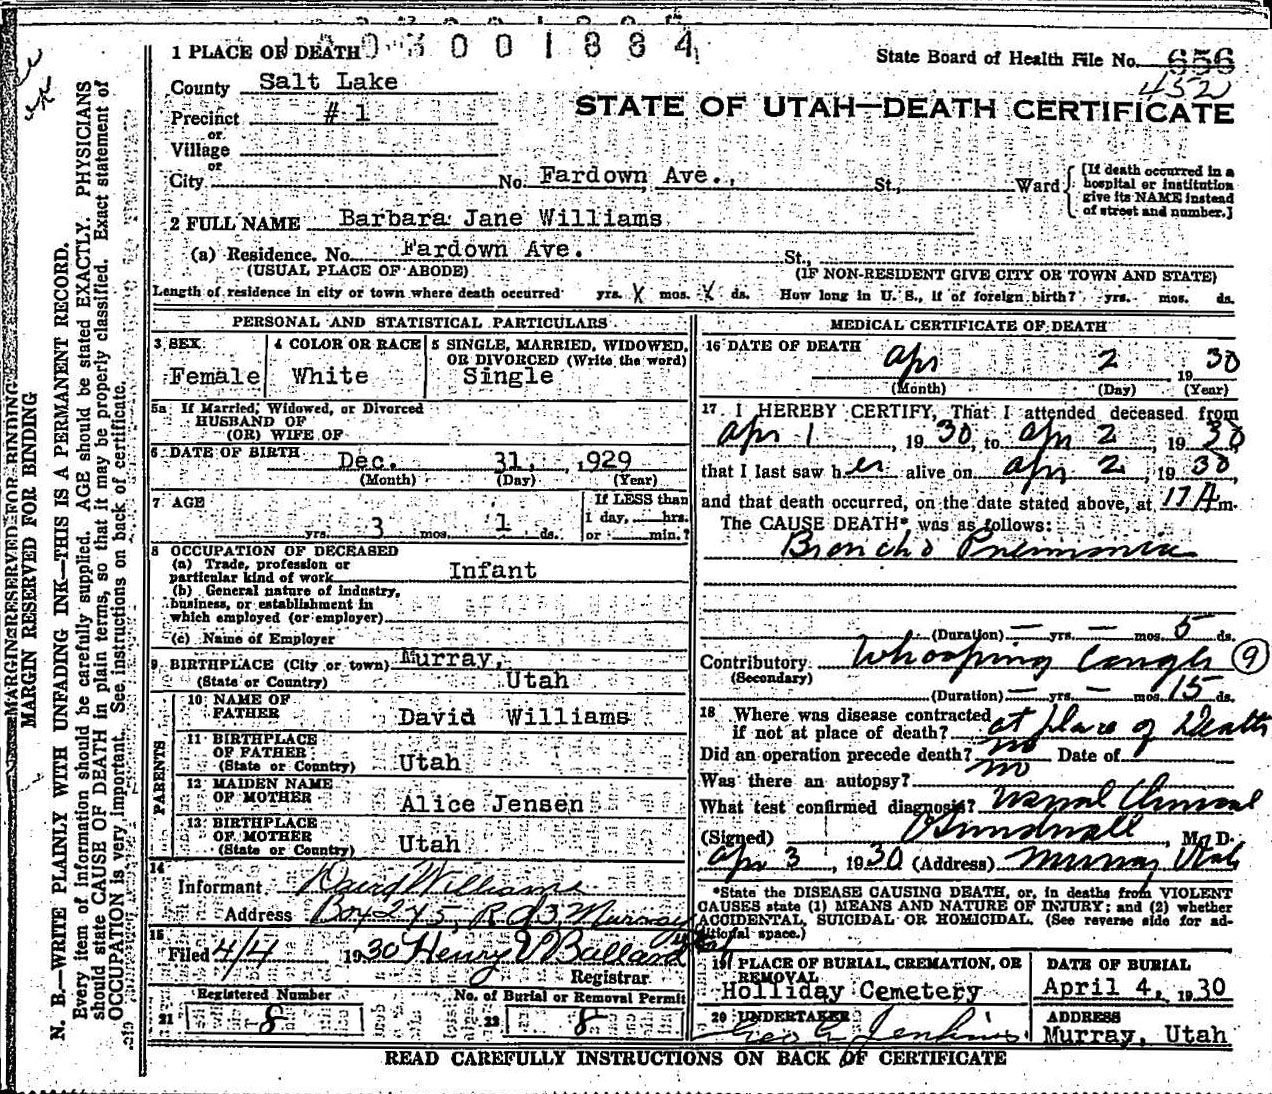 1 PLACE OF DEATH
3001884
State Board of Health File No. 656
452
County Salt Lake
STATE OF UTAH—DEATH CERTIFICATE
Precinct # 1
or
Village
or
City No. Fardown Ave., St., Ward
[If death occurred in a hospital or institution give its NAME instead of street and number.]
2 FULL NAME Barbara Jane Williams
(a) Residence. No. Fardown Ave. St.,
(USUAL PLACE OF ABODE) (IF NON-RESIDENT GIVE CITY OR TOWN AND STATE)
Length of residence in city or town where death occurred yrs. X mos. X ds. How long in U. S., if of foreign birth? yrs. mos. ds.
PERSONAL AND STATISTICAL PARTICULARS
3 SEX 4 COLOR OR RACE 5 SINGLE, MARRIED, WIDOWED, OR DIVORCED (Write the word)
Female White Single
5a If Married, Widowed, or Divorced
HUSBAND OF
(OR) WIFE OF
6 DATE OF BIRTH Dec. 31, 1929
(Month) (Day) (Year)
7 AGE If LESS than
yrs. 3 mos. 1 ds. 1 day, hrs.
or min.?
8 OCCUPATION OF DECEASED
(a) Trade, profession or
particular kind of work Infant
(b) General nature of industry,
business, or establishment in
which employed (or employer)
(c) Name of Employer
9 BIRTHPLACE (City or town) Murray,
(State or Country) Utah
PARENTS
10 NAME OF
FATHER David Williams
11 BIRTHPLACE
OF FATHER
(State or Country) Utah
12 MAIDEN NAME
OF MOTHER Alice Jensen
13 BIRTHPLACE
OF MOTHER
(State or Country) Utah
14
Informant David Williams
Address Box 245, R D 3 Murray Utah
15
Filed 4/4 1930 Henry V Ballard
Registrar
Registered Number No. of Burial or Removal Permit
21 8 22 8
MEDICAL CERTIFICATE OF DEATH
16 DATE OF DEATH
Apr 2 1930
(Month) (Day) (Year)
17 I HEREBY CERTIFY, That I attended deceased from
Apr 1, 1930, to Apr 2, 1930
that I last saw her alive on Apr 2, 1930,
and that death occurred, on the date stated above, at A m.
The CAUSE DEATH* was as follows:
Broncho Pneumonia
(Duration) — yrs. — mos. 5 ds.
Contributory Whooping Cough 9
(Secondary)
(Duration) — yrs. — mos. 15 ds.
18 Where was disease contracted
if not at place of death? at place of Death
Did an operation precede death? no Date of
Was there an autopsy? no
What test confirmed diagnosis? Clinical
(Signed) , M. D.
Apr 3, 1930 (Address) Murray Utah
*State the DISEASE CAUSING DEATH, or, in deaths from VIOLENT
CAUSES state (1) MEANS AND NATURE OF INJURY; and (2) whether
ACCIDENTAL, SUICIDAL OR HOMICIDAL. (See reverse side for ad-
ditional space.)
19 PLACE OF BURIAL, CREMATION, OR REMOVAL DATE OF BURIAL
Holliday Cemetery April 4, 1930
20 UNDERTAKER ADDRESS
Geo Jenkins Murray, Utah
READ CAREFULLY INSTRUCTIONS ON BACK OF CERTIFICATE
MARGIN RESERVED FOR BINDING
MARGIN RESERVED FOR BINDING
N. B.—WRITE PLAINLY WITH UNFADING INK—THIS IS A PERMANENT RECORD.
Every item of information should be carefully supplied. AGE should be stated EXACTLY. PHYSICIANS
should state CAUSE OF DEATH in plain terms, so that it may be properly classified. Exact statement of
OCCUPATION is very important. See instructions on back of certificate.